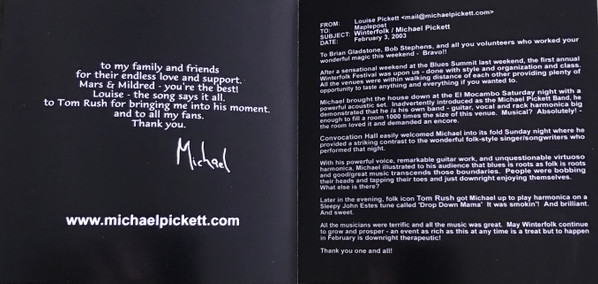 to my family and friends
for their endless love and support.
Mars & Mildred - you're the best!
Louise - the song says it all.
to Tom Rush for bringing me into his moment.
and to all my fans.
Thank you.
Michael
www.michaelpickett.com
FROM: Louise Pickett <mail@michaelpickett.com>
TO: Maplepost
SUBJECT: Winterfolk / Michael Pickett
DATE: February 3, 2003
To Brian Gladstone, Bob Stephens, and all you volunteers who worked your
wonderful magic this weekend - Bravo!!
After a sensational weekend at the Blues Summit last weekend, the first annual
Winterfolk Festival was upon us - done with style and organization and class.
All the venues were within walking distance of each other providing plenty of
opportunity to taste anything and everything if you wanted to.
Michael brought the house down at the El Mocambo Saturday night with a
powerful acoustic set. Inadvertently introduced as the Michael Pickett Band, he
demonstrated that he is his own band - guitar, vocal and rack harmonica big
enough to fill a room 1000 times the size of this venue. Musical? Absolutely! -
the room loved it and demanded an encore.
Convocation Hall easily welcomed Michael into its fold Sunday night where he
provided a striking contrast to the wonderful folk-style singer/songwriters who
performed that night.
With his powerful voice, remarkable guitar work, and unquestionable virtuoso
harmonica, Michael illustrated to his audience that blues is roots as folk is roots
and good/great music transcends those boundaries. People were bobbing
their heads and tapping their toes and just downright enjoying themselves.
What else is there?
Later in the evening, folk icon Tom Rush got Michael up to play harmonica on a
Sleepy John Estes tune called 'Drop Down Mama' It was smokin'! And brilliant.
And sweet.
All the musicians were terrific and all the music was great. May Winterfolk continue
to grow and prosper - an event as rich as this at any time is a treat but to happen
in February is downright therapeutic!
Thank you one and all!